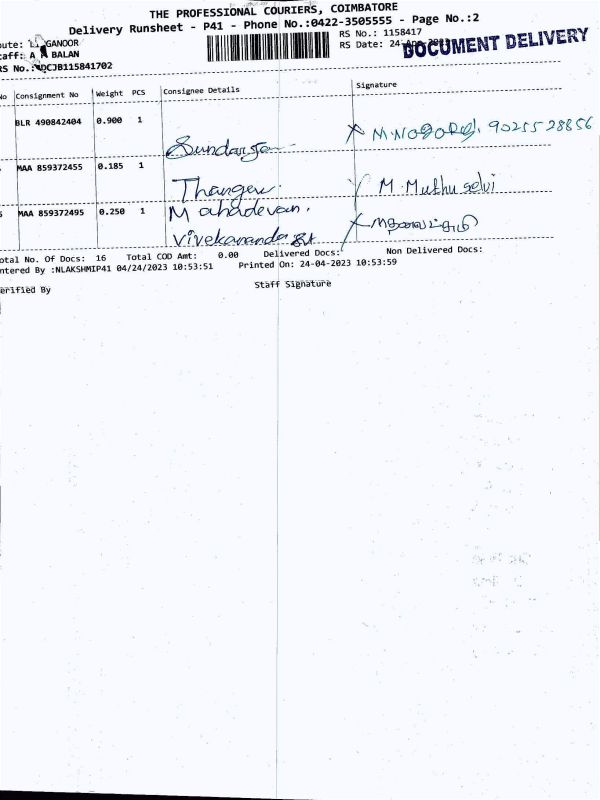 THE PROFESSIONAL COURIERS, COIMBATORE
Delivery Runsheet - P41 - Phone No.:0422-3505555 - Page No.:2
ute: GANOOR
RS No.: 1158417
aff: A BALAN
RS Date: 24-
DOCUMENT DELIVERY
RS No.: DCJB115841702
No Consignment No Weight PCS Consignee Details Signature
BLR 490842404 0.900 1
9025528856
MAA 859372455 0.185 1
M. Muthu selvi
MAA 859372495 0.250 1 Mahadevan.
Vivekananda
otal No. Of Docs: 16 Total COD Amt: 0.00 Delivered Docs: Non Delivered Docs:
ntered By :NLAKSHMIP41 04/24/2023 10:53:51 Printed On: 24-04-2023 10:53:59
erified By Staff Signature